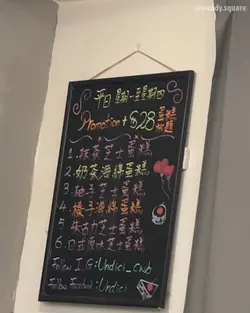 @wendy.square
平日 星期一至星期四
Promotion + $28 蛋糕放題
1. 抹茶芝士蛋糕
2. 奶茶海綿蛋糕
3. 柚子芝士蛋糕
4. 橙子海綿蛋糕
5 朱古力芝士蛋糕
6. 日式原味芝士蛋糕
Follow I.G: Undici_club
Follow Facebook: Undici